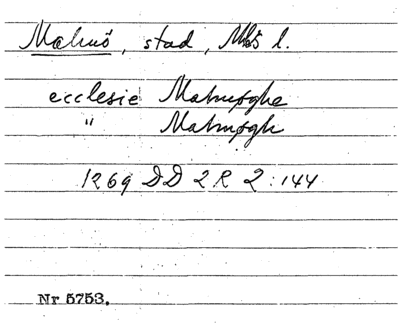 Malmö, stad, Mhs l.
ecclesie Malmøghe
" Malmøgh
1269 DD 2 R 2:144
Nr 5753.